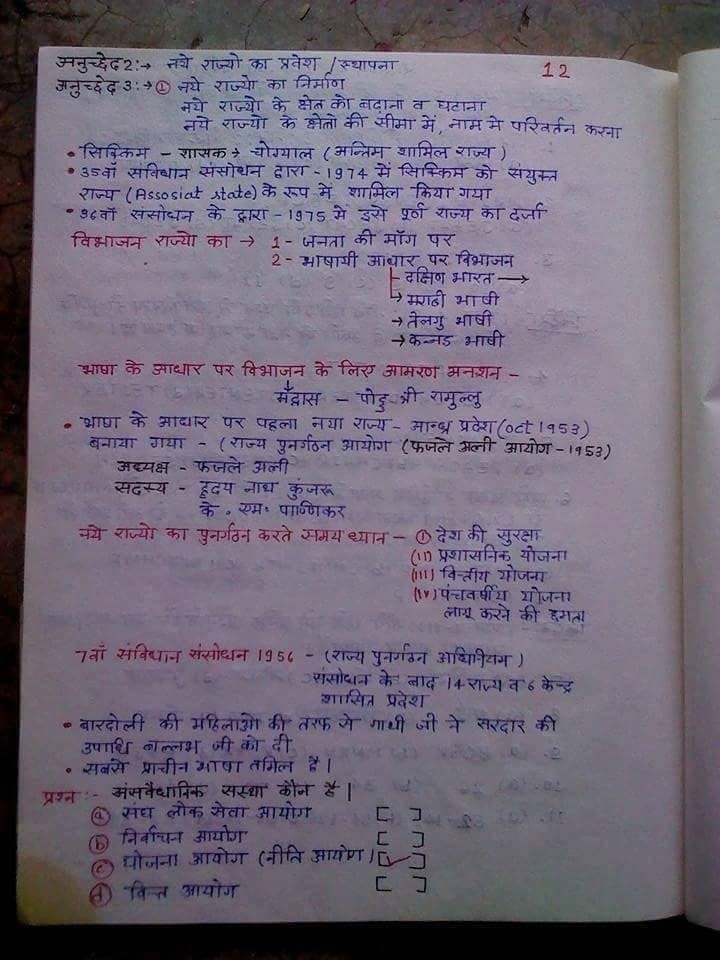 12
अनुच्छेद 2:→ नये राज्यो का प्रवेश /स्थापना
अनुच्छेद 3:→ ① नये राज्यो का निर्माण
नये राज्यो के क्षेत्र को बढाना व घटाना
नये राज्यो के क्षेत्रो की सीमा में, नाम मे परिवर्तन करना
• सिक्किम - शासक → चोग्याल (अन्तिम शामिल राज्य)
• 35वाँ संविधान संसोधन द्वारा - 1974 में सिक्किम को संयुक्त
राज्य (Assosiat state) के रूप मे शामिल किया गया
• 36वाँ संसोधन के द्वारा - 1975 में इसे पूर्ण राज्य का दर्जा
विभाजन राज्यो का → 1 - जनता की माँग पर
2 - भाषायी आधार पर विभाजन
दक्षिण भारत →
→ मराठी भाषी
→ तेलगु भाषी
→ कन्नड भाषी
भाषा के आधार पर विभाजन के लिए आमरण अनशन -
मद्रास - पोट्टु श्री रामुल्लु
• भाषा के आधार पर पहला नया राज्य - आन्ध्र प्रदेश (oct 1953)
बनाया गया - (राज्य पुनर्गठन आयोग (फजले अली आयोग - 1953)
अध्यक्ष - फजले अली
सदस्य - हृदय नाथ कुंजरू
के. एम. पाण्णिकर
नये राज्यो का पुनर्गठन करते समय ध्यान - (i) देश की सुरक्षा
(ii) प्रशासनिक योजना
(iii) वित्तीय योजना
(iv) पंचवर्षीय योजना
लागू करने की क्षमता
7वाँ संविधान संसोधन 1956 - (राज्य पुनर्गठन अधिनियम)
संसोधन के बाद 14 राज्य व 6 केन्द्र
शासित प्रदेश
• बारदोली की महिलाओ की तरफ से गाधी जी ने सरदार की
उपाधि बल्लभ जी को दी
• सबसे प्राचीन भाषा तमिल है।
प्रश्न :- असंवैधानिक सस्था कौन है।
ⓐ संघ लोक सेवा आयोग [ ]
ⓑ निर्वाचन आयोग [ ]
ⓒ योजना आयोग (नीति आयोग) [✓]
ⓓ वित्त आयोग [ ]